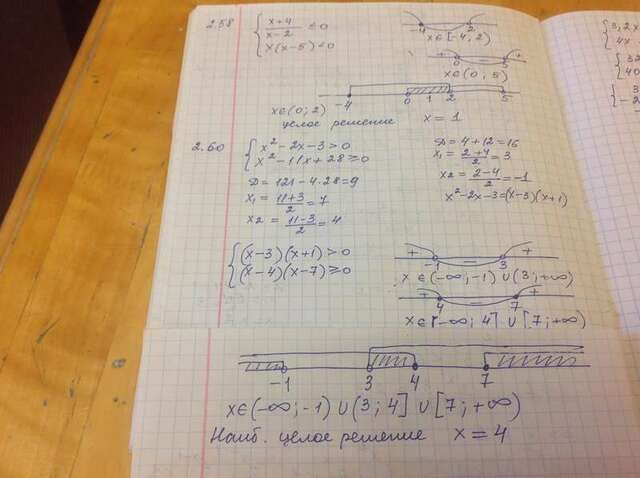 2.58 { x+4 / x-2 ≤ 0
x(x-5) < 0
-4 2
x∈[-4, 2)
+ 0 - 5 +
x∈(0; 5)
-4 0 1 2 5
x∈(0; 2)
целое решение x = 1
2.60 { x² - 2x - 3 > 0
x² - 11x + 28 ≥ 0
Д = 4 + 12 = 16
x₁ = (2+4)/2 = 3
x2 = (2-4)/2 = -1
x² - 2x - 3 = (x-3)(x+1)
Д = 121 - 4·28 = 9
x₁ = (11+3)/2 = 7
x2 = (11-3)/2 = 4
{ (x-3)(x+1) > 0
(x-4)(x-7) ≥ 0
+ -1 - 3 +
x∈(-∞; -1) ∪ (3; +∞)
+ 4 - 7 +
x∈[-∞; 4] ∪ [7; +∞)
-1 3 4 7
x∈(-∞; -1) ∪ (3; 4] ∪ [7; +∞)
Наиб. целое решение x = 4
{ 3,2x
4x
{ 32
40
{ 3
-2